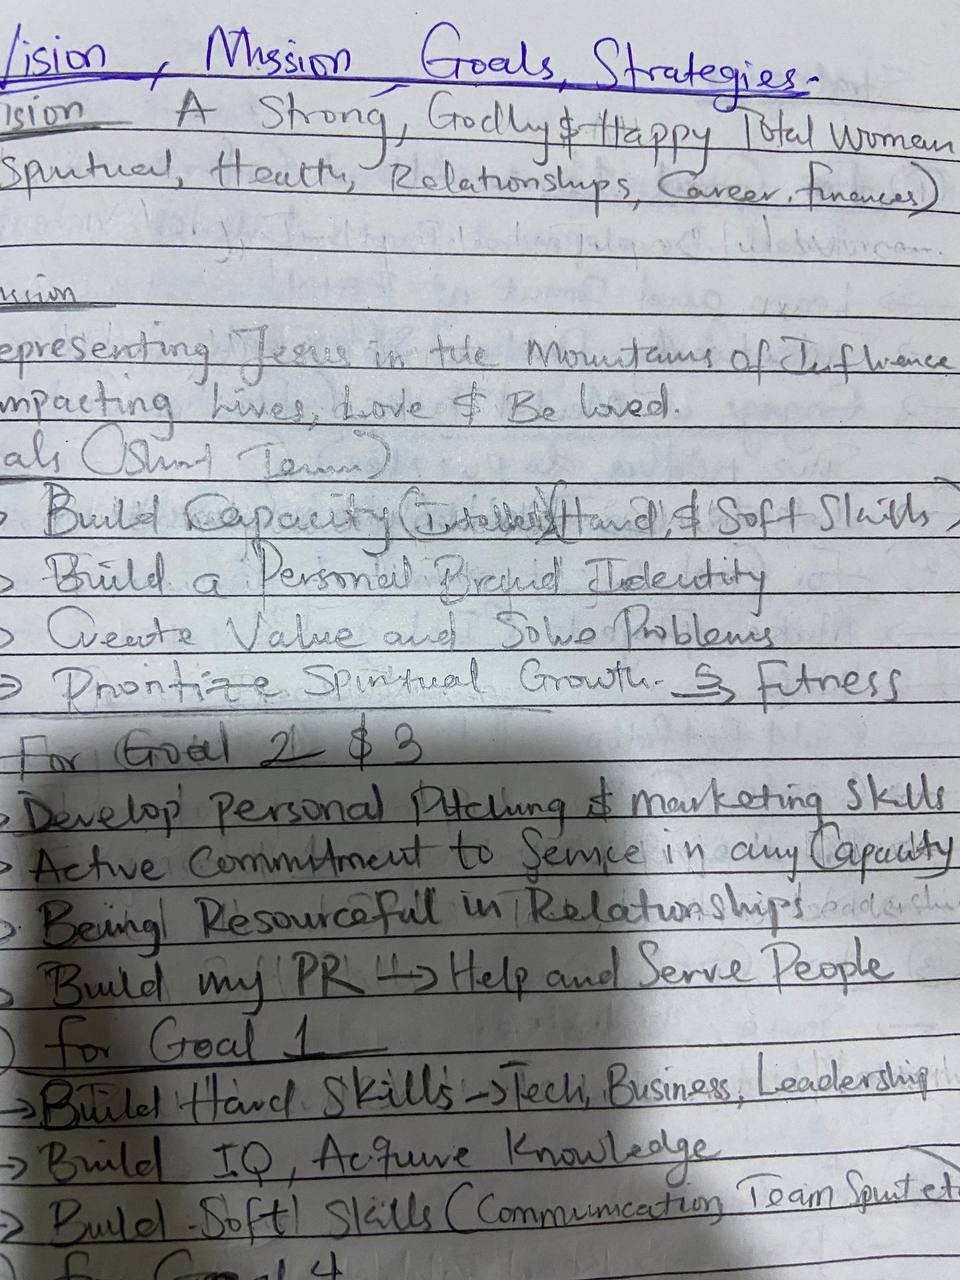 Vision, Mission Goals, Strategies.
ision A Strong, Godly & Happy Total Woman
Spiritual, Health, Relationships, Career, finances)
ission
epresenting Jesus in the Mountains of Influence
mpacting Lives, Love & Be loved.
als (Short Term)
Build Capacity (Hard & Soft Skills)
Build a Personal Brand Identity
Create Value and Solve Problems
Prioritize Spiritual Growth. & Fitness
For Goal 2 & 3
Develop personal Pitching & marketing Skills
Active Commitment to Service in any Capacity
Being Resourceful in Relationships
Build my PR → Help and Serve People
for Goal 1
→ Build Hard Skills → Tech, Business, Leadership
→ Build IQ, Acquire Knowledge
→ Build Soft Skills (Communication, Team Spirit etc
for Goal 4